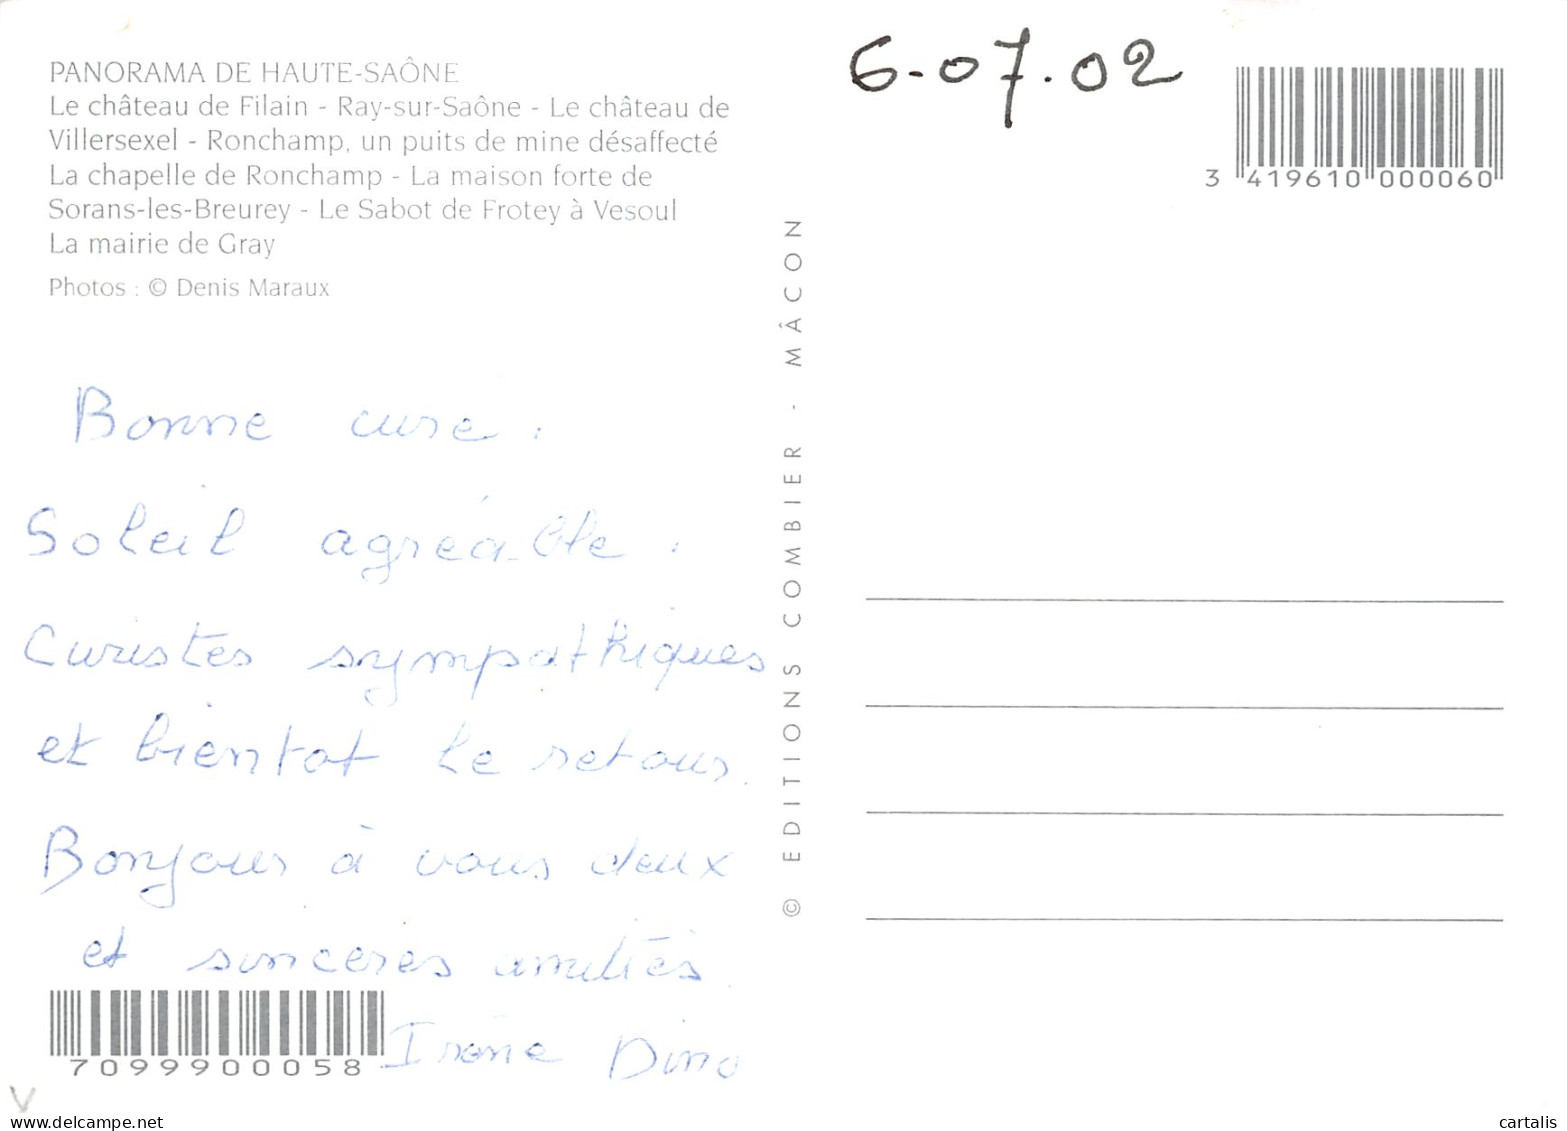 PANORAMA DE HAUTE-SAÔNE
Le château de Filain - Ray-sur-Saône - Le château de
Villersexel - Ronchamp, un puits de mine désaffecté
La chapelle de Ronchamp - La maison forte de
Sorans-les-Breurey - Le Sabot de Frotey à Vesoul
La mairie de Gray
Photos : © Denis Maraux
Bonne cure.
Soleil agréable.
Curistes sympathiques
et bientot le retour.
Bonjour à vous deux
et sincères amitiés
Irène Dino
7099900058
V
© EDITIONS COMBIER - MÂCON
6.07.02
3 419610 000060
www.delcampe.net
cartalis